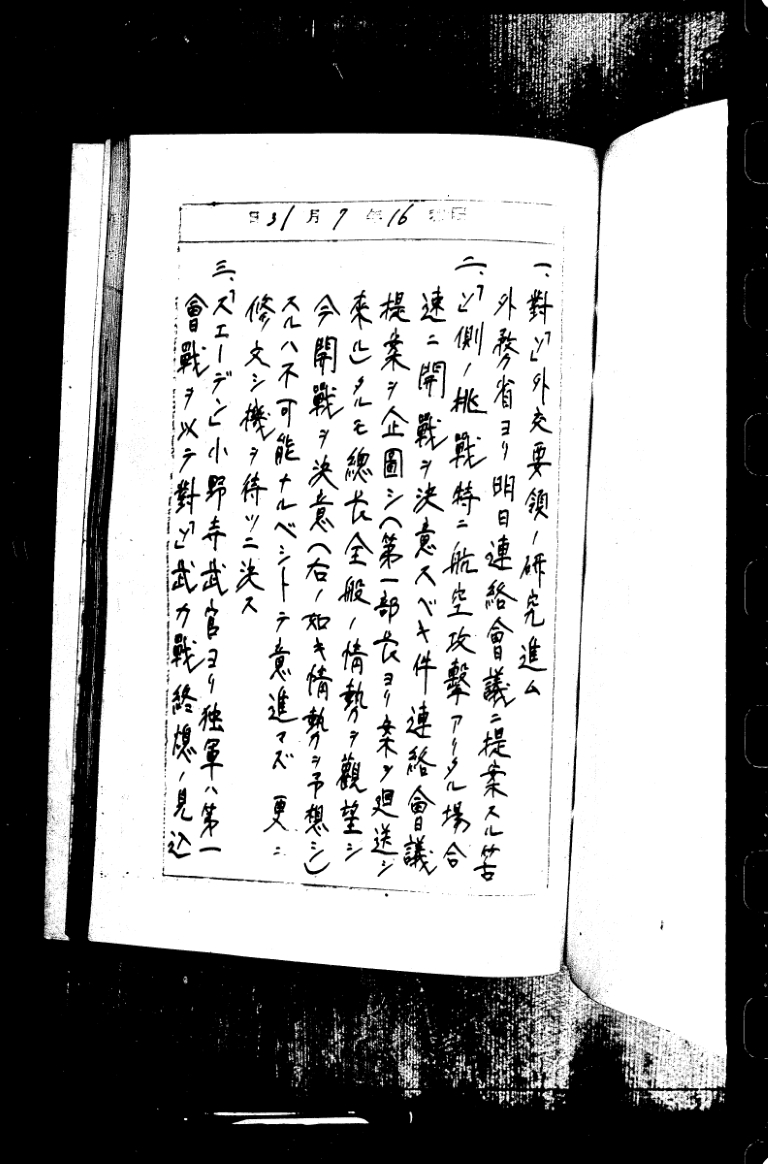 昭和16年7月31日
一、對「ソ」外交要領ノ研究進ム
外務省ヨリ明日連絡會議ニ提案スル筈
二、「ソ」側ノ挑戰特ニ航空攻擊アリタル場合
速ニ開戰ヲ決意スベキ件連絡會議
提案ヲ企圖シ(第一部長ヨリ案ヲ廻送シ
來ル)タルモ總長全般ノ情勢ヲ觀望シ
今開戰ヲ決意(右ノ如キ情勢ヲ予想シ)
スルハ不可能ナルベシトテ意進マズ 更ニ
修文シ機ヲ待ツニ決ス
三、「スエーデン」小野寺武官ヨリ独軍ハ第一
會戰ヲ以テ對「ソ」武力戰終熄ノ見込